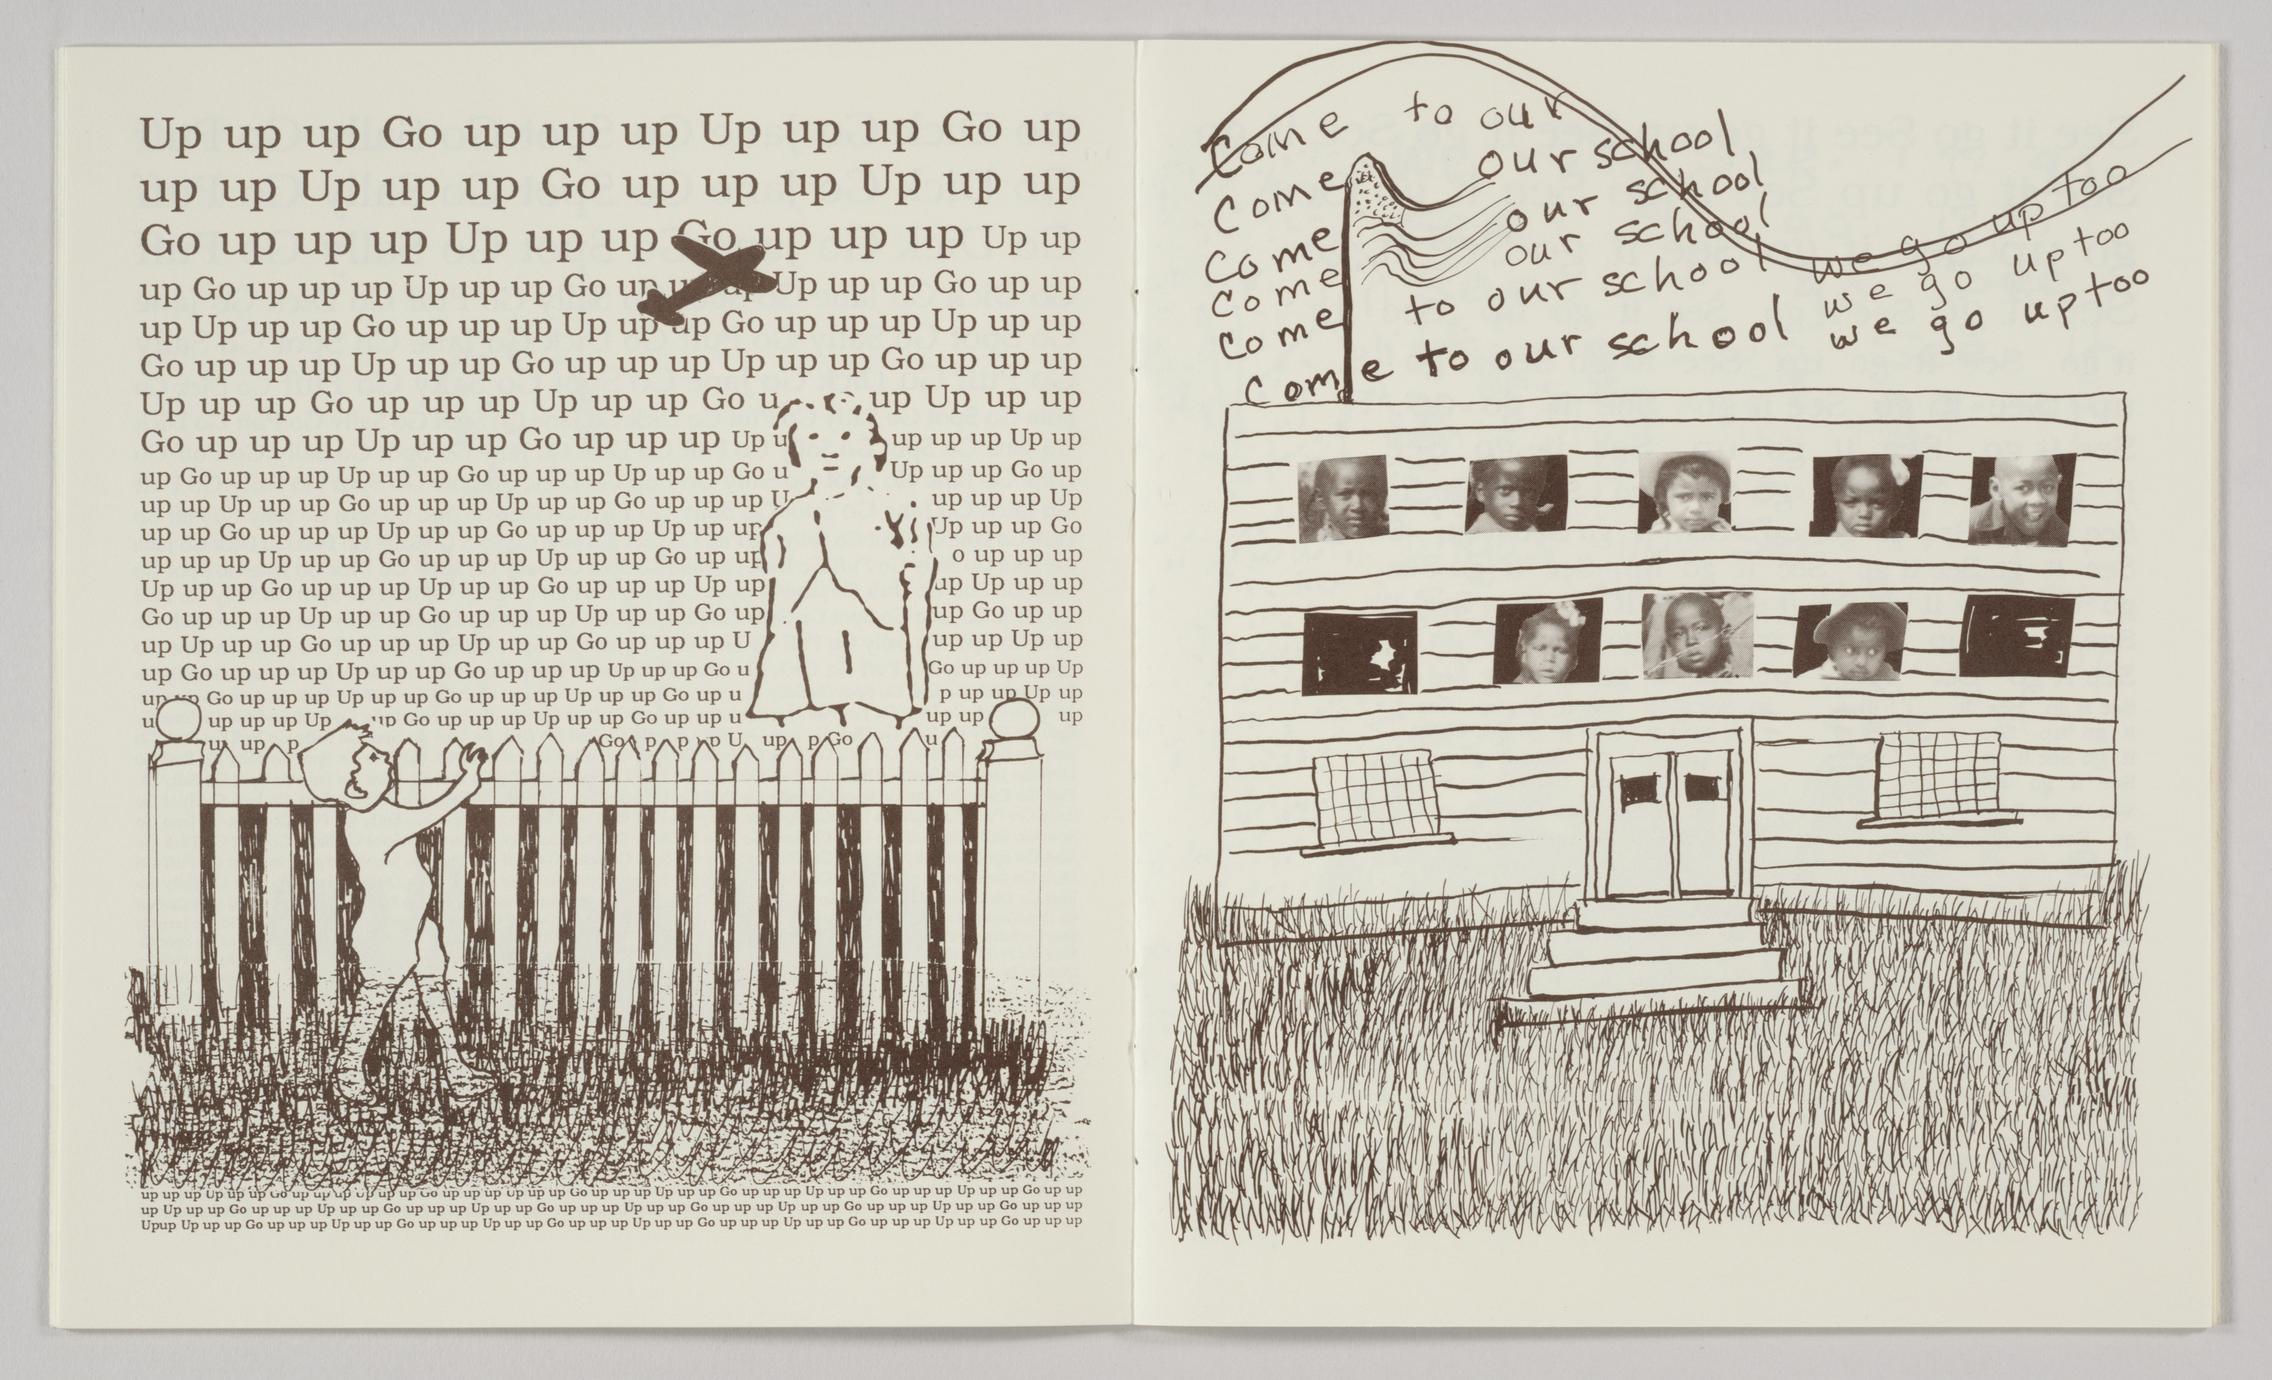 Up up up Go up up up Up up up Go up
up up Up up up Go up up up Up up up
Go up up up Up up up Go up up up Up up
up Go up up up Up up up Go up up up Up up up Go up up
up Up up up Go up up up Up up up Go up up up Up up up
Go up up up Up up up Go up up up Up up up Go up up up
Up up up Go up up up Up up up Go u up Up up up
Go up up up Up up up Go up up up Up u up up up Up up
up Go up up up Up up up Go up up up Up up up Go u Up up up Go up
up up Up up up Go up up up Up up up Go up up up U up up up Up
up up Go up up up Up up up Go up up up Up up up Up up up Go
up up up Up up up Go up up up Up up up Go up up o up up up
Up up up Go up up up Up up up Go up up up Up up up Up up up
Go up up up Up up up Go up up up Up up up Go up up Go up up
up Up up up Go up up up Up up up Go up up up U up up Up up
up Go up up up Up up up Go up up up Up up up Go u Go up up up Up
up up Go up up up Up up up Go up up up Up up up Go up u p up up Up up
u up up up Up up Go up up up Up up up Go up up u up up up
u up p Go p p p U up p Go u
up up up Up up up Go up up up Up up up Go up up up Up up up Go up up up Up up up Go up up up Up up up Go up up up Up up up Go up up
up Up up up Go up up up Up up up Go up up up Up up up Go up up up Up up up Go up up up Up up up Go up up up Up up up Go up up
Upup Up up up Go up up up Up up up Go up up up Up up up Go up up up Up up up Go up up up Up up up Go up up up Up up up Go up up up
Come to our
Come our school
Come our school
Come our school we go up too
Come to our school we go up too
Come to our school we go up too